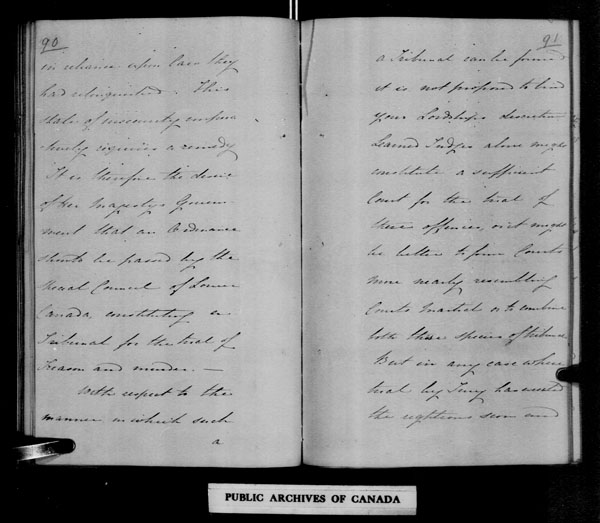 90
in reliance upon laws they
had relinquished. This
state of insecurity impera
tively requires a remedy
It is therefore the desire
of Her Majesty's Govern-
ment that an Ordinance
should be passed by the
Special Council of Lower
Canada, constituting a
Tribunal for the trial of
Treason and murder. —
With respect to the
manner in which such
a
91
a Tribunal can be formed
it is not proposed to bind
your Lordship's discretion
Learned Judges alone might
constitute a sufficient
Court for the trial of
these offences, or it might
be better to form Courts
more nearly resembling
Courts Martial or to combine
both these species of tribunal
But in any case where
trial by Jury has ceased
the righteous
PUBLIC ARCHIVES OF CANADA